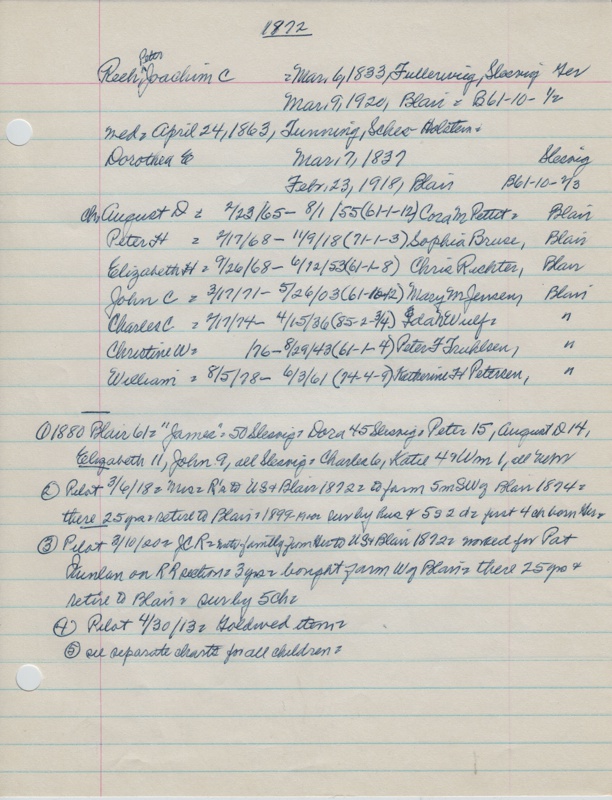 1872
Peter
Rech, Joachim C = Mar. 6, 1833, Sleswig Ger
Mar. 9, 1920, Blair = B61-10-1/2
med= April 24, 1863, Holstein=
Dorothea E Mar. 7, 1837 Sleswig
Febr. 23, 1918, Blair B61-10-2/3
ch= August D = 2/23/65 - 8/1/55 (61-1-12) Cora M Pettit = Blair
Peter H = 2/17/68 - 11/9/18 (71-1-3) Sophia Bruse, Blair
Elizabeth H = 9/26/68 - 6/12/53 (61-1-8) Chris Richter, Blair
John C = 3/17/71 - 5/26/03 Mary M Jensen, Blair
Charles C = 2/17/74 - 4/15/36 (85-2-3/4) Ida M Wulf = "
Christine W = /76 - 8/29/43 (61-1-4) Peter F Truhlsen, "
William = 8/5/78 - 6/3/61 (74-4-9) Katherine H Petersen, "
① 1880 Blair 61 = "James" = 50 Sleswig = Dora 45 Sleswig = Peter 15, August D 14,
Elizabeth 11, John 9, all Sleswig = Charles 6, Katie 4 + Wm 1, all Nebr
② Pilot 3/6/18 = Mrs = R's to US + Blair 1872 = to farm 5 m SW of Blair 1874 =
there 25 yrs = retire to Blair = 1899 sur by hus + 5 s 2 d = first 4 ch born Ger =
③ Pilot 3/10/20 = JC R = family from Ger to US + Blair 1872 = worked for Pat
on RR section = 3 yrs = bought farm W of Blair = there 25 yrs +
retire to Blair = sur by 5 ch =
④ Pilot 4/30/13 = Gold wed item =
⑤ see separate charts for all children =